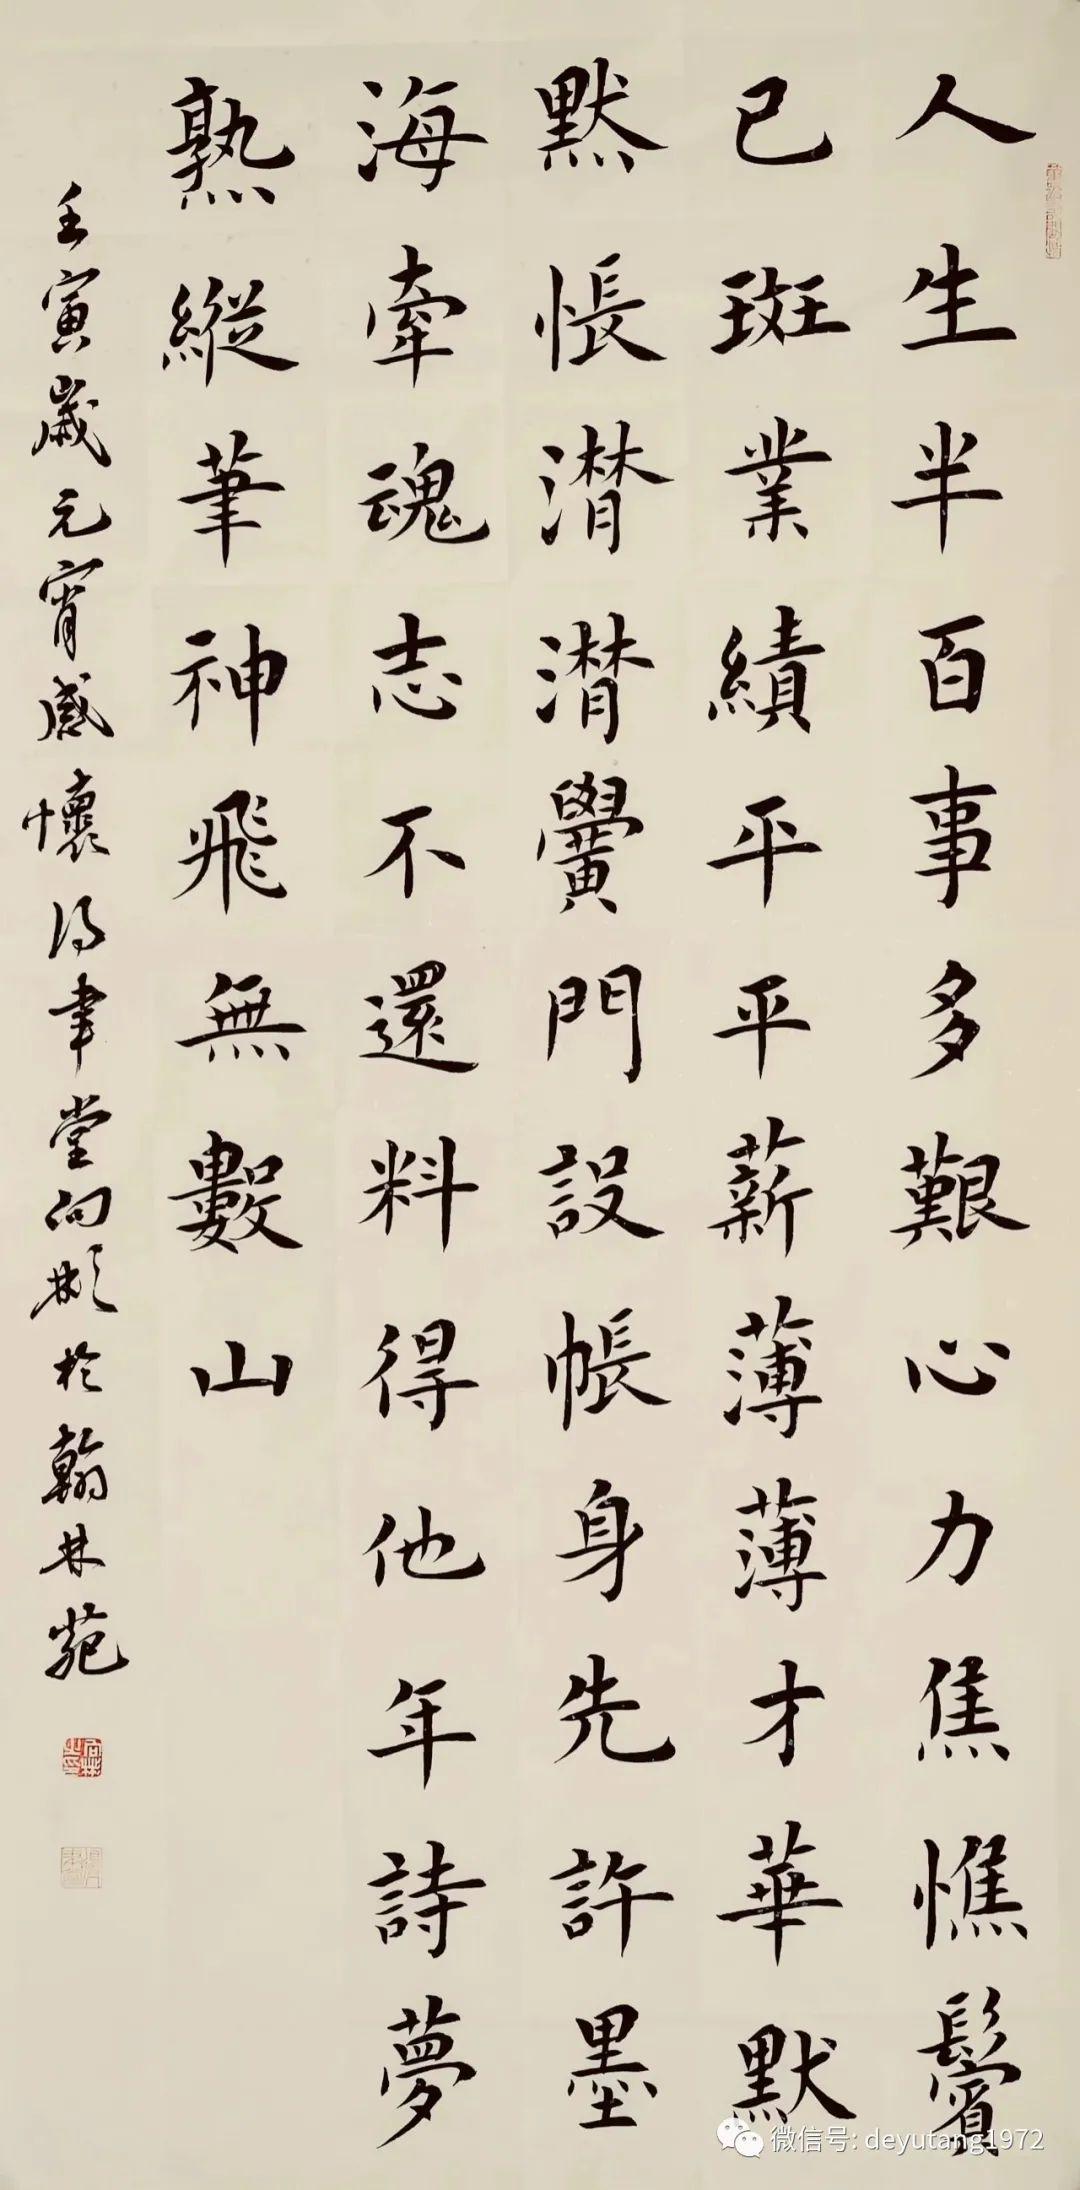 人生半百事多艱心力焦憔鬢
已斑業績平平薪薄薄才華默
默悵潸潸黌門設帳身先許墨
海牽魂志不還料得他年詩夢
熟縱筆神飛無數山
壬寅歲元宵感懷得聿堂向彬於翰林苑
微信号: deyutang1972